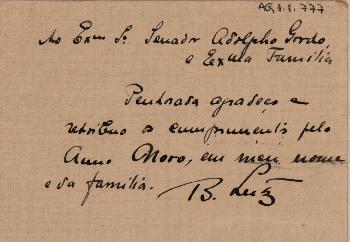 AG.1.1.777
Ao Exmo Sr. Senador Adolpho Gordo,
e Exma Familia
Penhorada agradeço e
retribuo os cumprimentos pelo
Anno Novo, em meu nome
e da familia.
B. Lutz